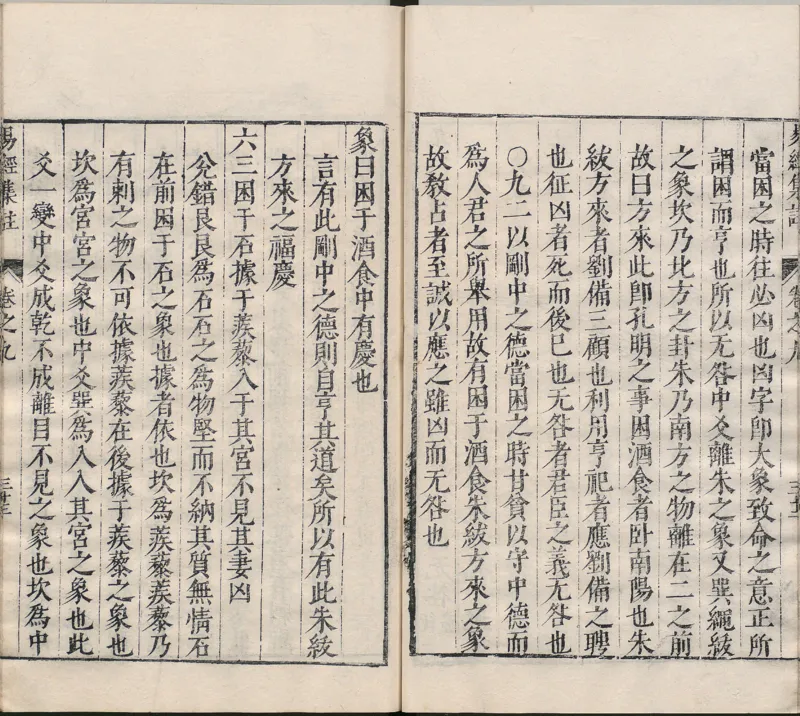 易經集註 卷之九
當困之時往必凶也凶字卽大象致命之意正所
謂困而亨也所以无咎中爻離朱之象又巽繩紱
之象坎乃北方之卦朱乃南方之物離在二之前
故曰方來此卽孔明之事困酒食者卧南陽也朱
紱方來者劉備三顧也利用亨祀者應劉備之聘
也征凶者死而後已也无咎者君臣之義无咎也
○九二以剛中之德當困之時甘貧以守中德而
爲人君之所舉用故有困于酒食朱紱方來之象
故敎占者至誠以應之雖凶而无咎也
象曰困于酒食中有慶也
言有此剛中之德則自亨其道矣所以有此朱紱
方來之福慶
六三困于石據于蒺藜入于其宮不見其妻凶
兌錯艮艮爲石石之爲物堅而不納其質無情石
在前困于石之象也據者依也坎爲蒺藜蒺藜乃
有刺之物不可依據蒺藜在後據于蒺藜之象也
坎爲宮宮之象也中爻巽爲入入其宮之象也此
爻一變中爻成乾不成離目不見之象也坎爲中
易經集註 卷之九